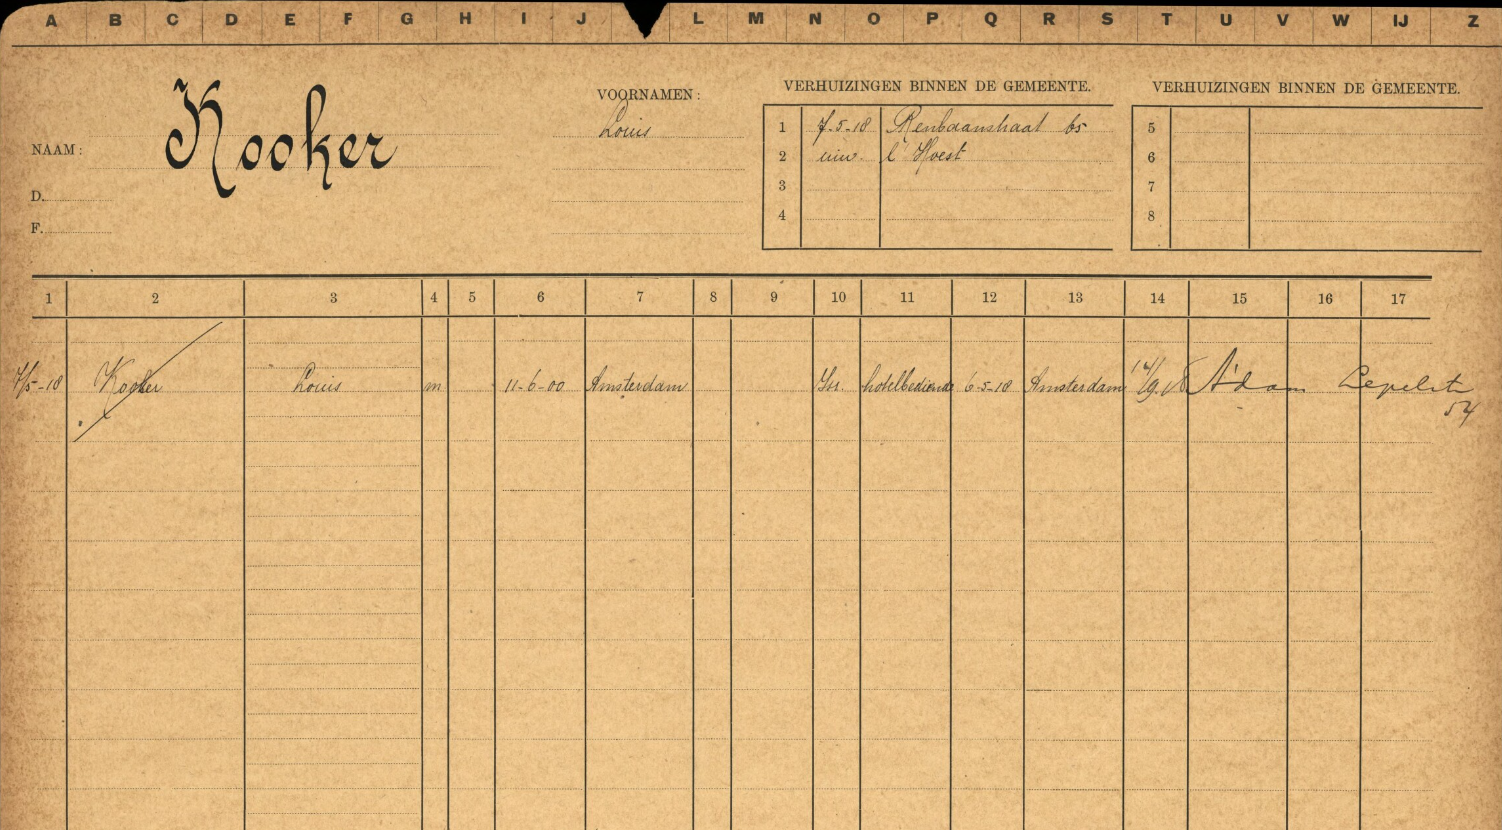 A B C D E F G H I J L M N O P Q R S T U V W IJ Z
NAAM: Kooker
D.
F.
VOORNAMEN:
Louis
VERHUIZINGEN BINNEN DE GEMEENTE.
1 7-5-18 Renbaanstraat 65
2 l'Hoest
3
4
VERHUIZINGEN BINNEN DE GEMEENTE.
5
6
7
8
1 2 3 4 5 6 7 8 9 10 11 12 13 14 15 16 17
7/5-18 Kooker Louis m 11-6-00 Amsterdam Isr. hotelbediende 6-5-18 Amsterdam 14/9.18 A'dam Lepelstr
54